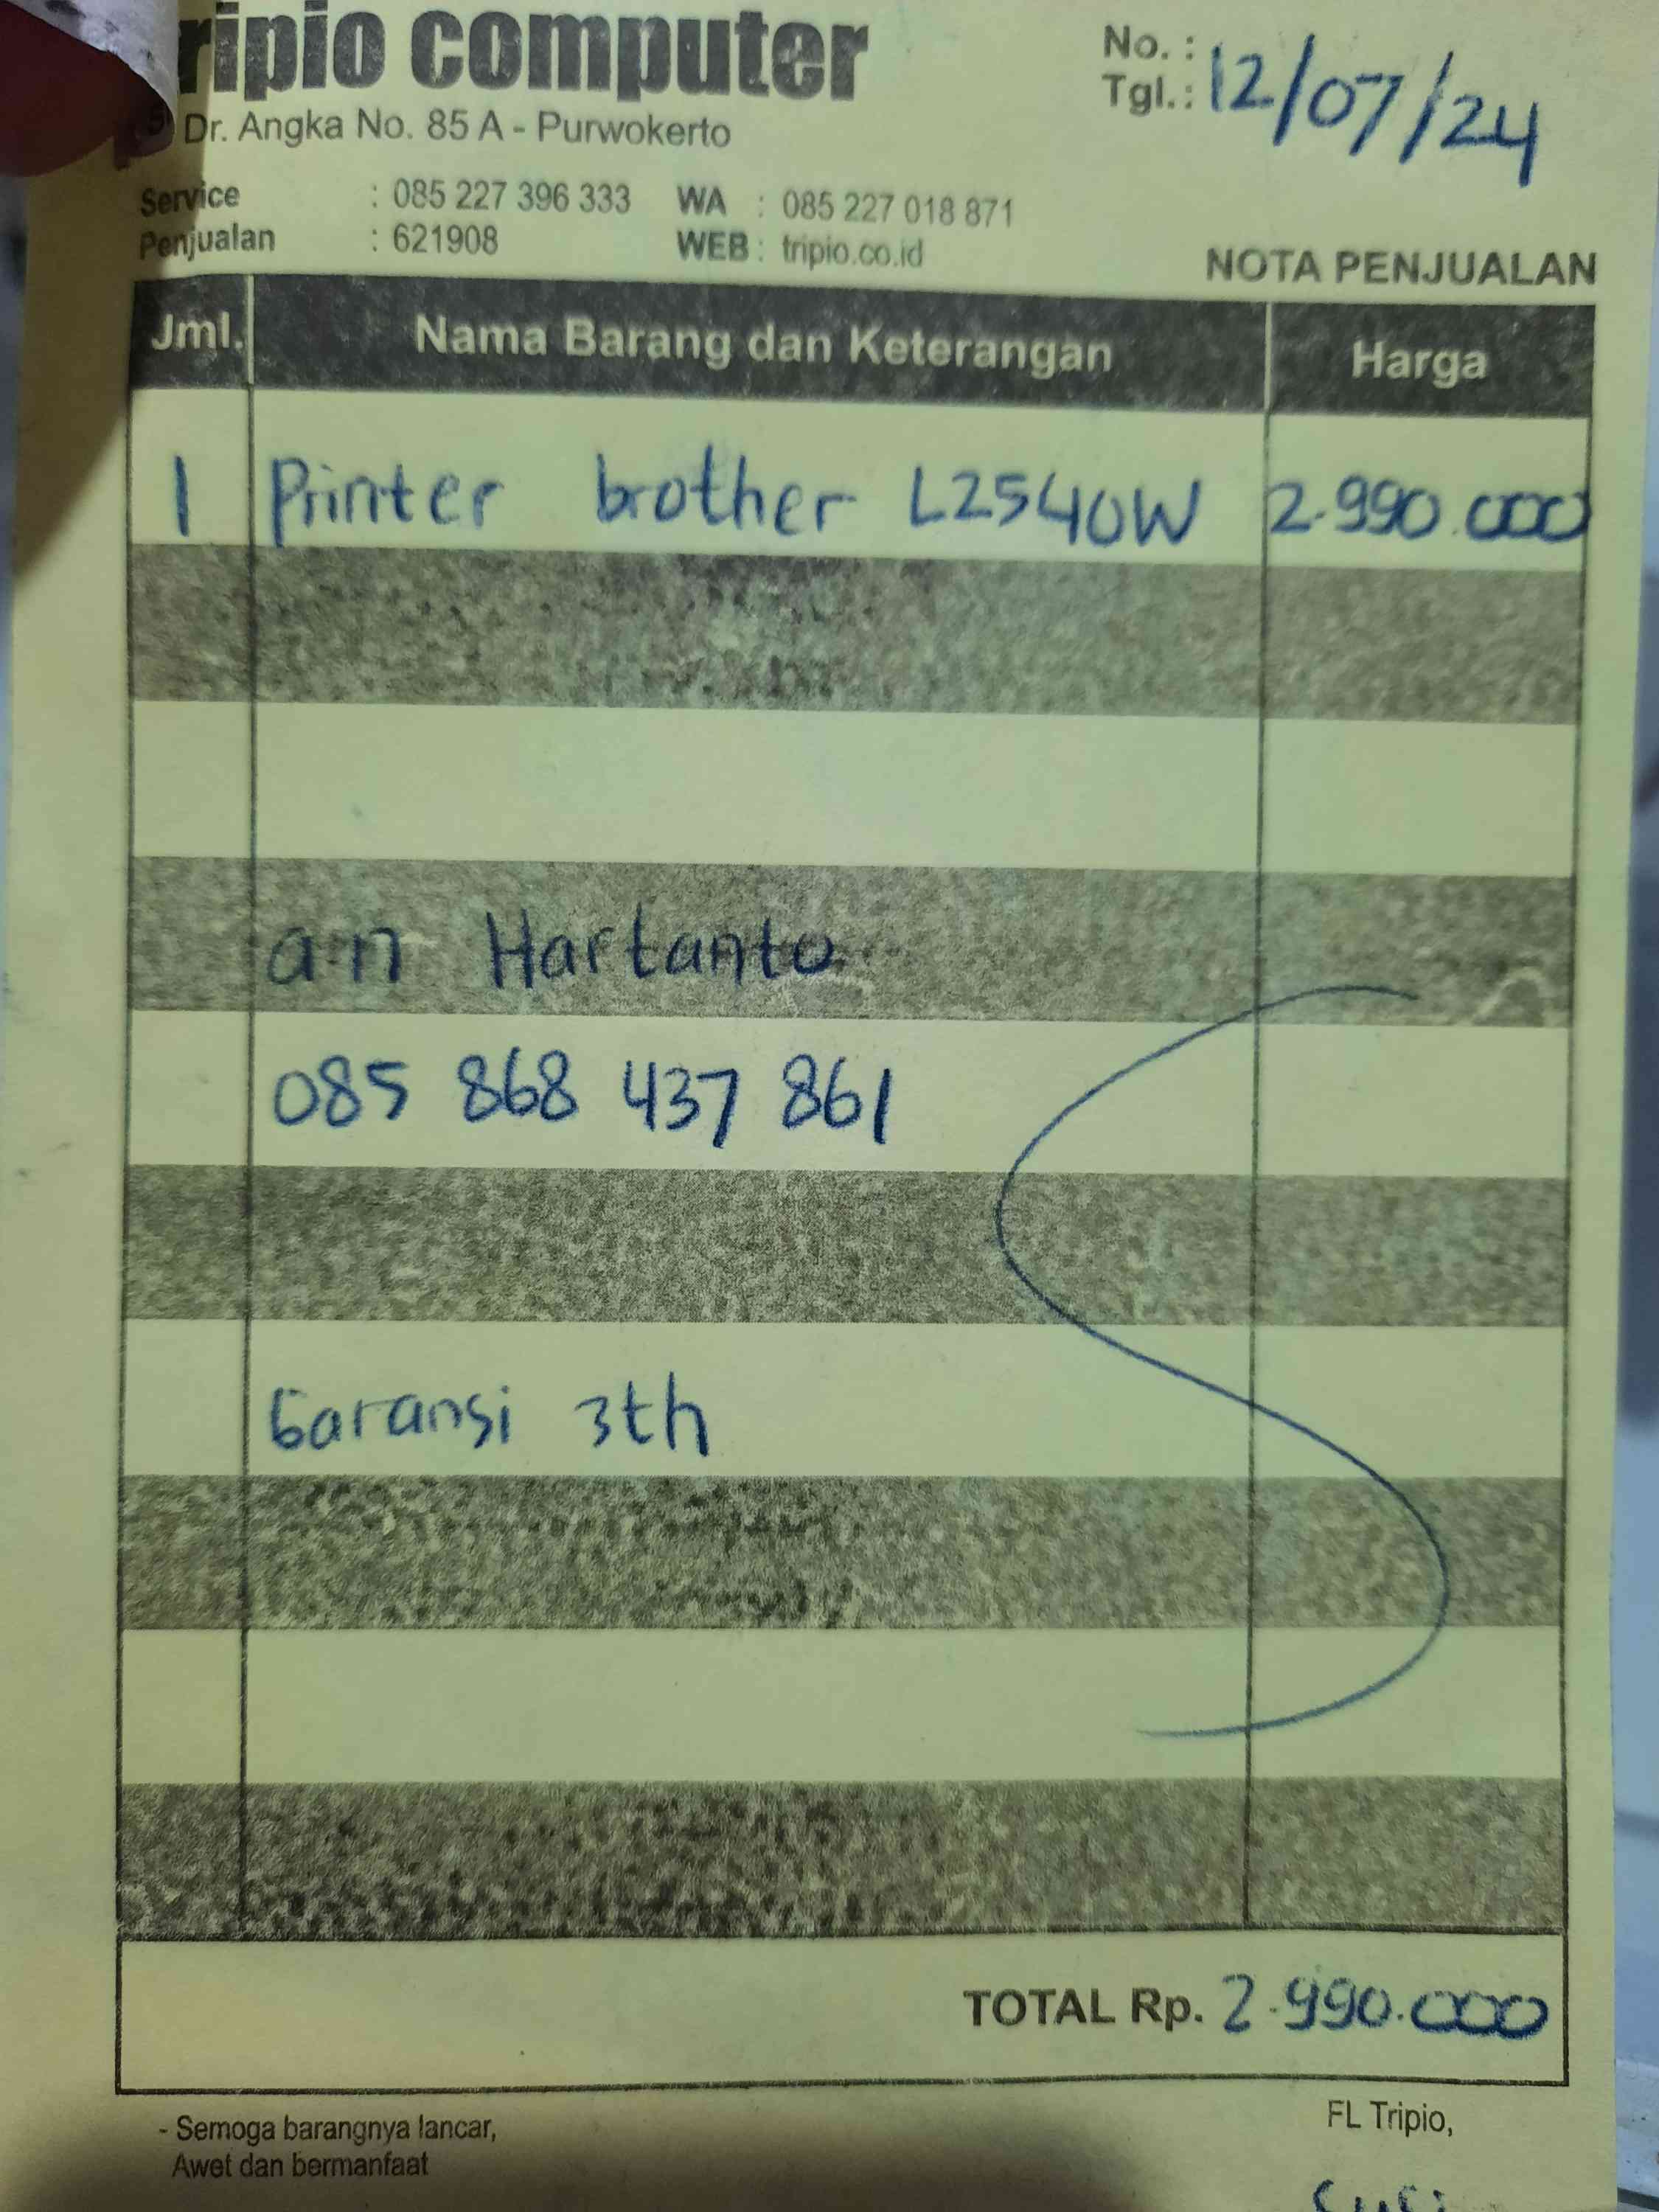 ripio computer
Dr. Angka No. 85 A - Purwokerto
No. :
Tgl. : 12/07/24
Service : 085 227 396 333 WA : 085 227 018 871
Penjualan : 621908 WEB : tripio.co.id
NOTA PENJUALAN
Jml. Nama Barang dan Keterangan Harga
1 Printer brother L2540W 2.990.000
a.n Hartanto
085 868 437 861
Garansi 3th
TOTAL Rp. 2.990.000
- Semoga barangnya lancar,
Awet dan bermanfaat
FL Tripio,